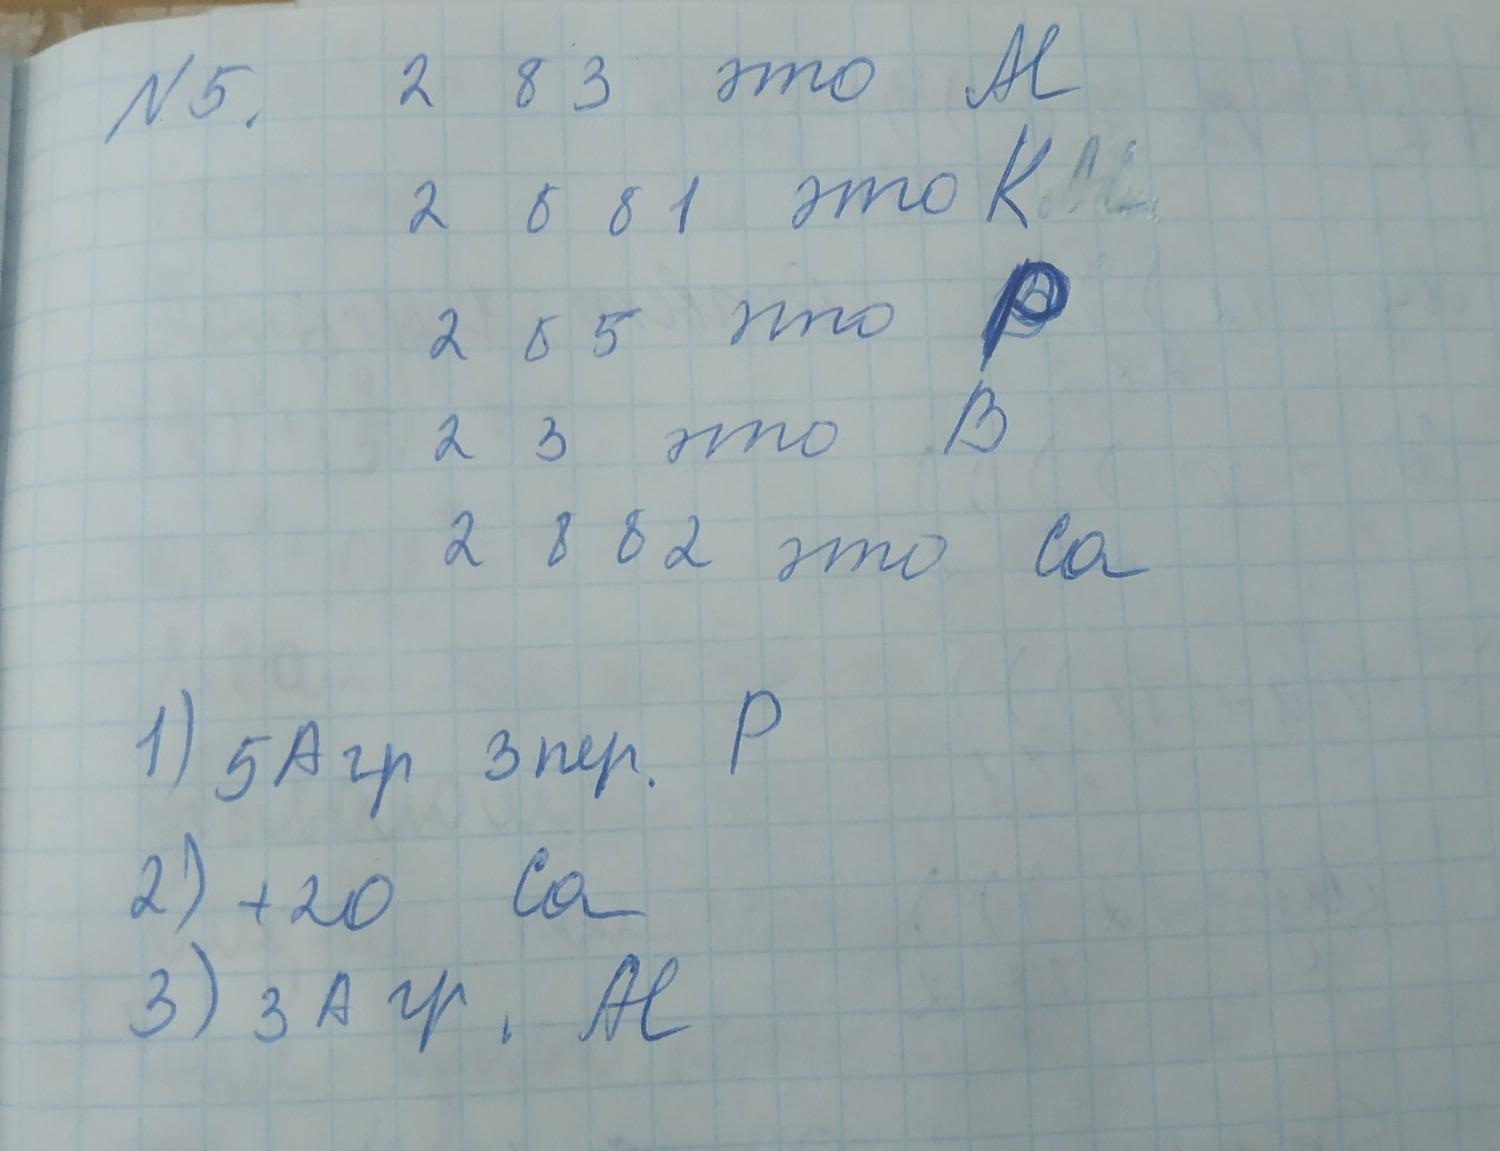 N5. 2 8 3 это Al
2 8 8 1 это K
2 8 5 это P
2 3 это B
2 8 8 2 это Ca
1) 5А гр 3 пер. P
2) +20 Ca
3) 3А гр. Al